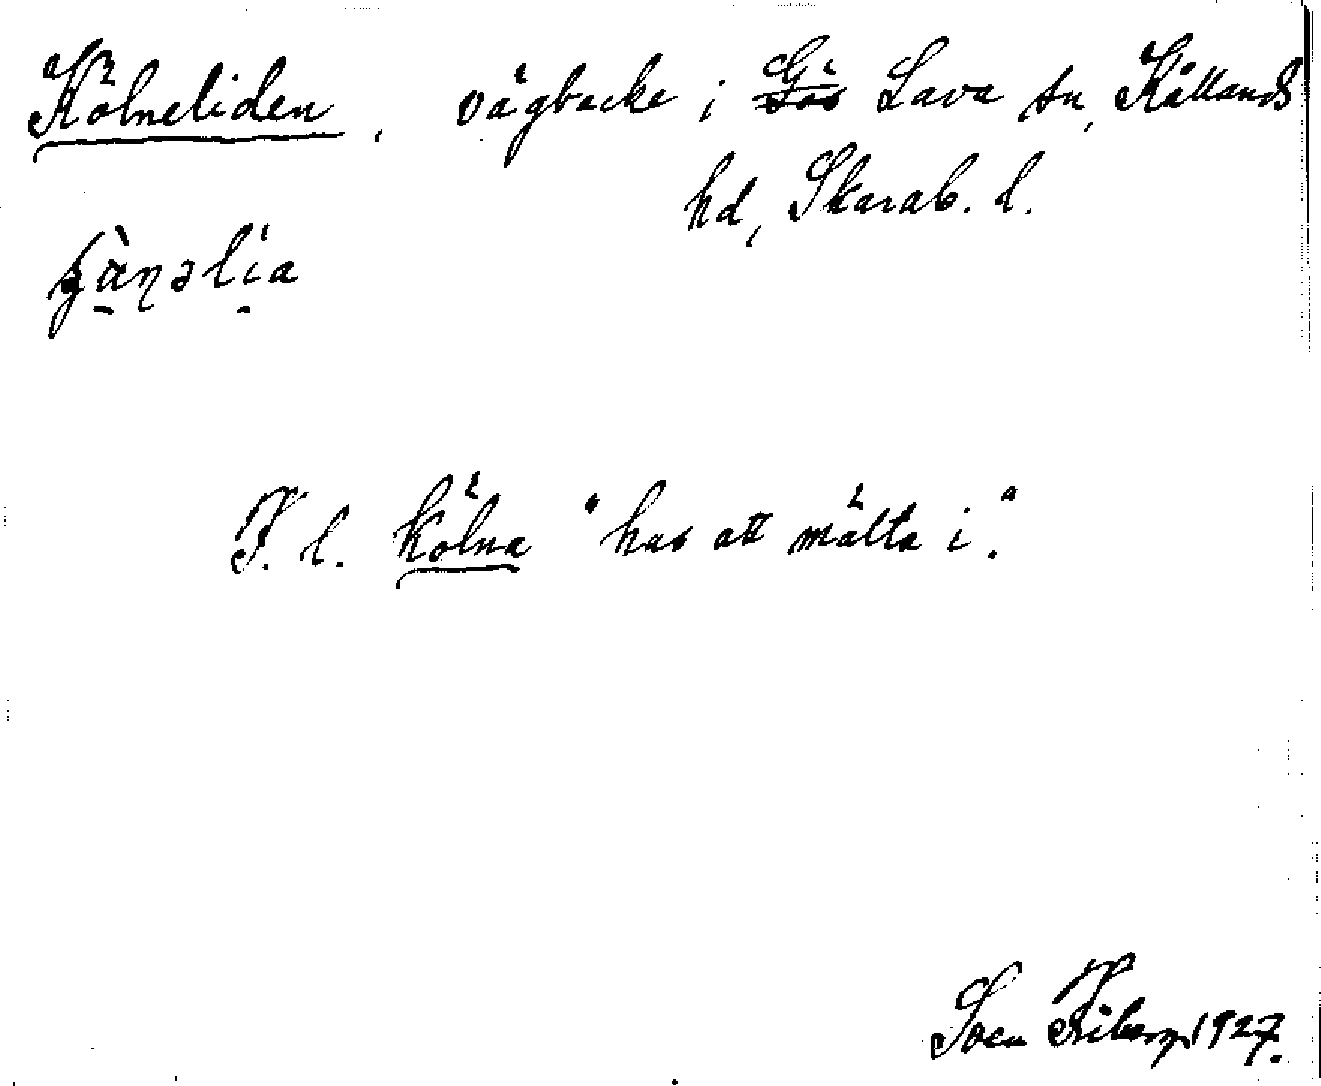 Kölneliden, vägbacke i Lava sn, Kållands
hd, Skarab. l.
F. l. kölna "hus att mälta i."
Sven 1927.